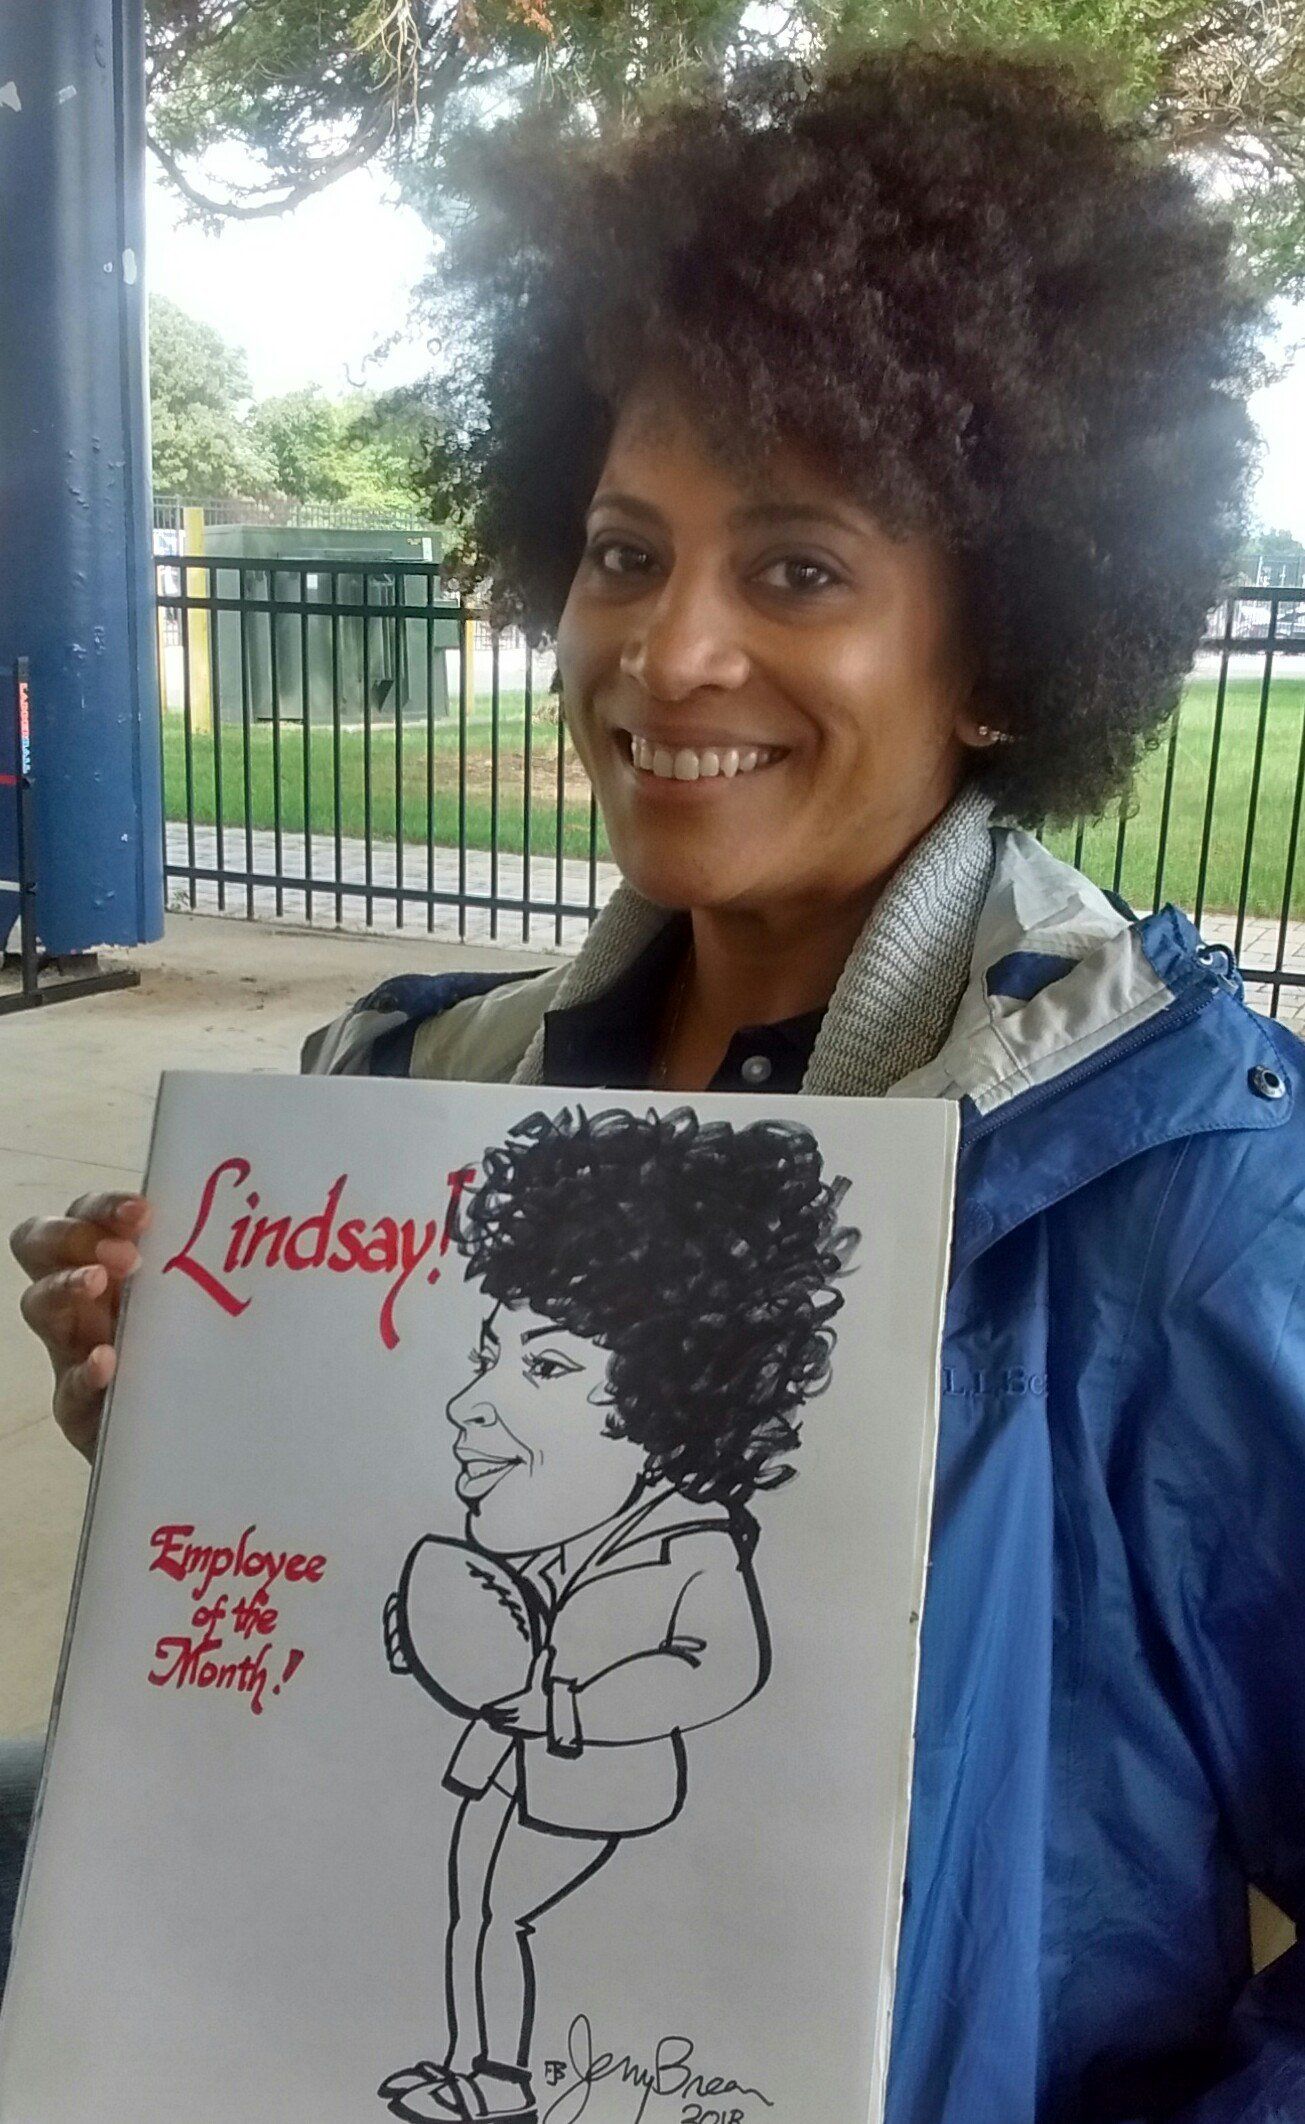 Lindsay!
Employee
of the
Month!
L.L.Be
JB Jerry Brean
2018